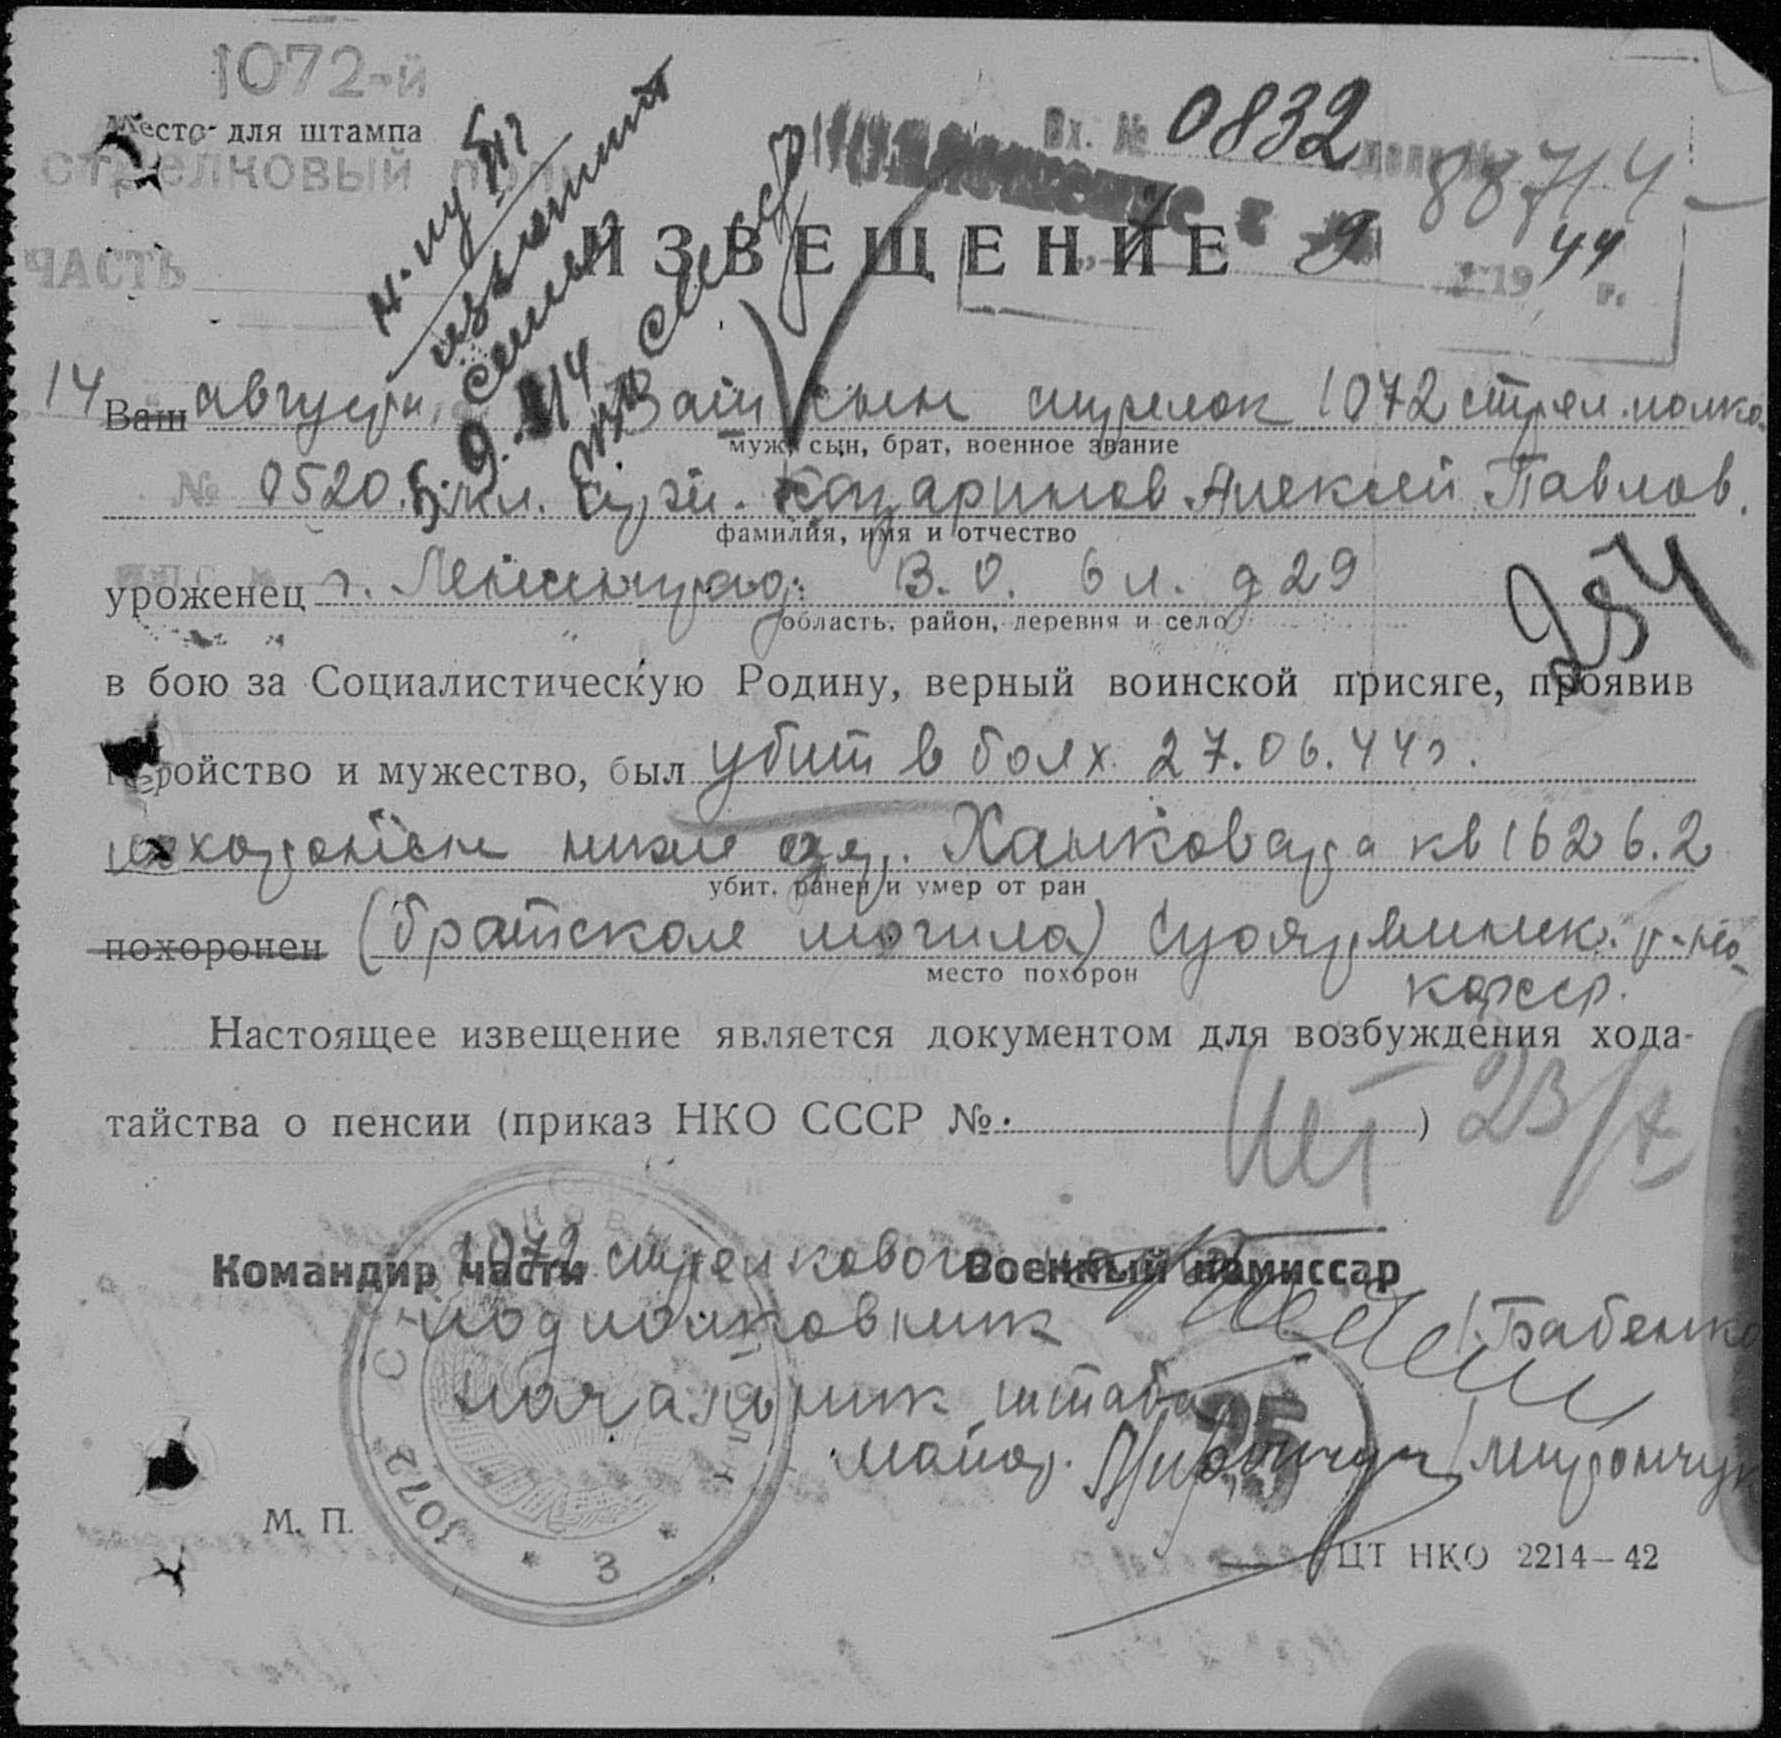 1072-й
Место для штампа
стрелковый полк
Вх. № 0832
88714
ЧАСТЬ
ИЗВЕЩЕНИЕ
9 1944 г.
извещения
семье
14 августа
Ваш Ваш сын стрелок 1072 стрел. полка
муж, сын, брат, военное звание
№ 0520 Алексей Павлов.
фамилия, имя и отчество
уроженец г. Ленинград. В.О. 6 л. д 29
область, район, деревня и село
254
в бою за Социалистическую Родину, верный воинской присяге, проявив
геройство и мужество, был убит в боях 27.06.44г.
похоронен Ханковара кв 1626.2
убит, ранен и умер от ран
похоронен (братская могила) Суоярвинск. р-на
место похорон
КФССР.
Настоящее извещение является документом для возбуждения хода-
тайства о пенсии (приказ НКО СССР № )
23/X
Командир части 1072 стрелкового Военный комиссар
подполковник /Бабенко
начальник штаба
25
майор. /Мирончук
1072
* 3 *
М. П.
ЦТ НКО 2214—42